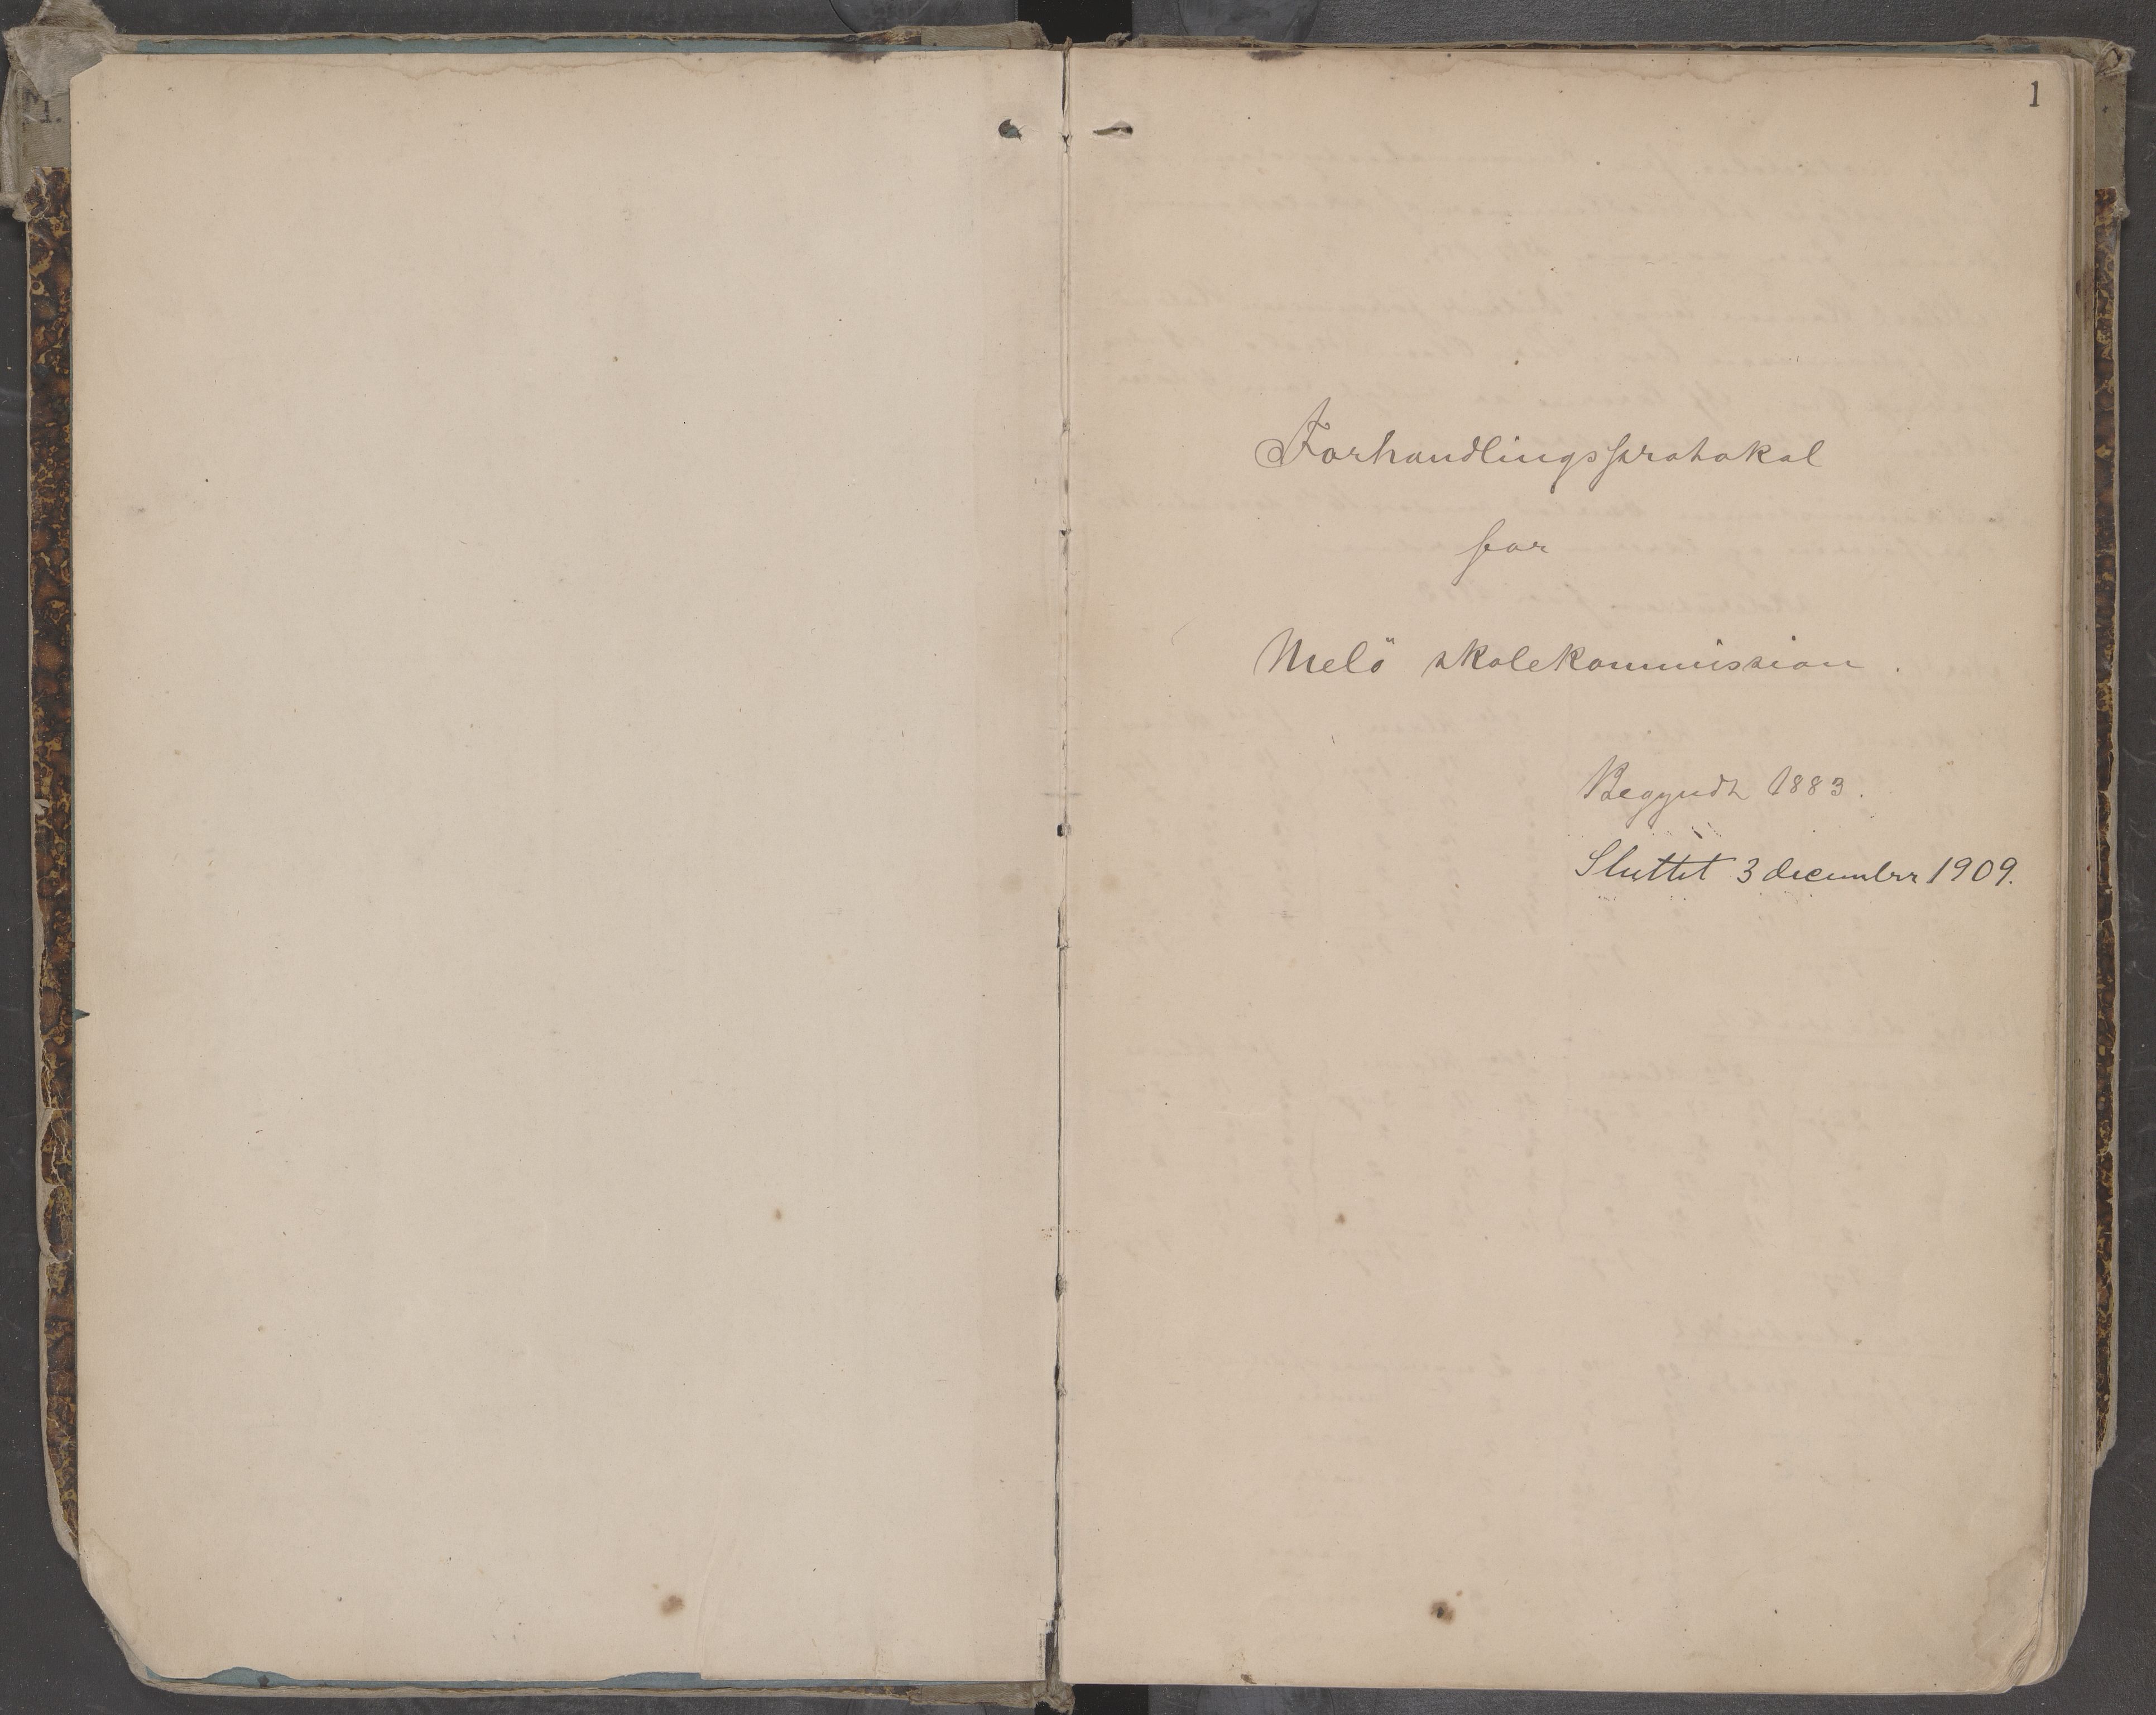 1
Forhandlingsprotokol
for
Melö skolekommission.
Begyndt 1883.
Sluttet 3 december 1909.